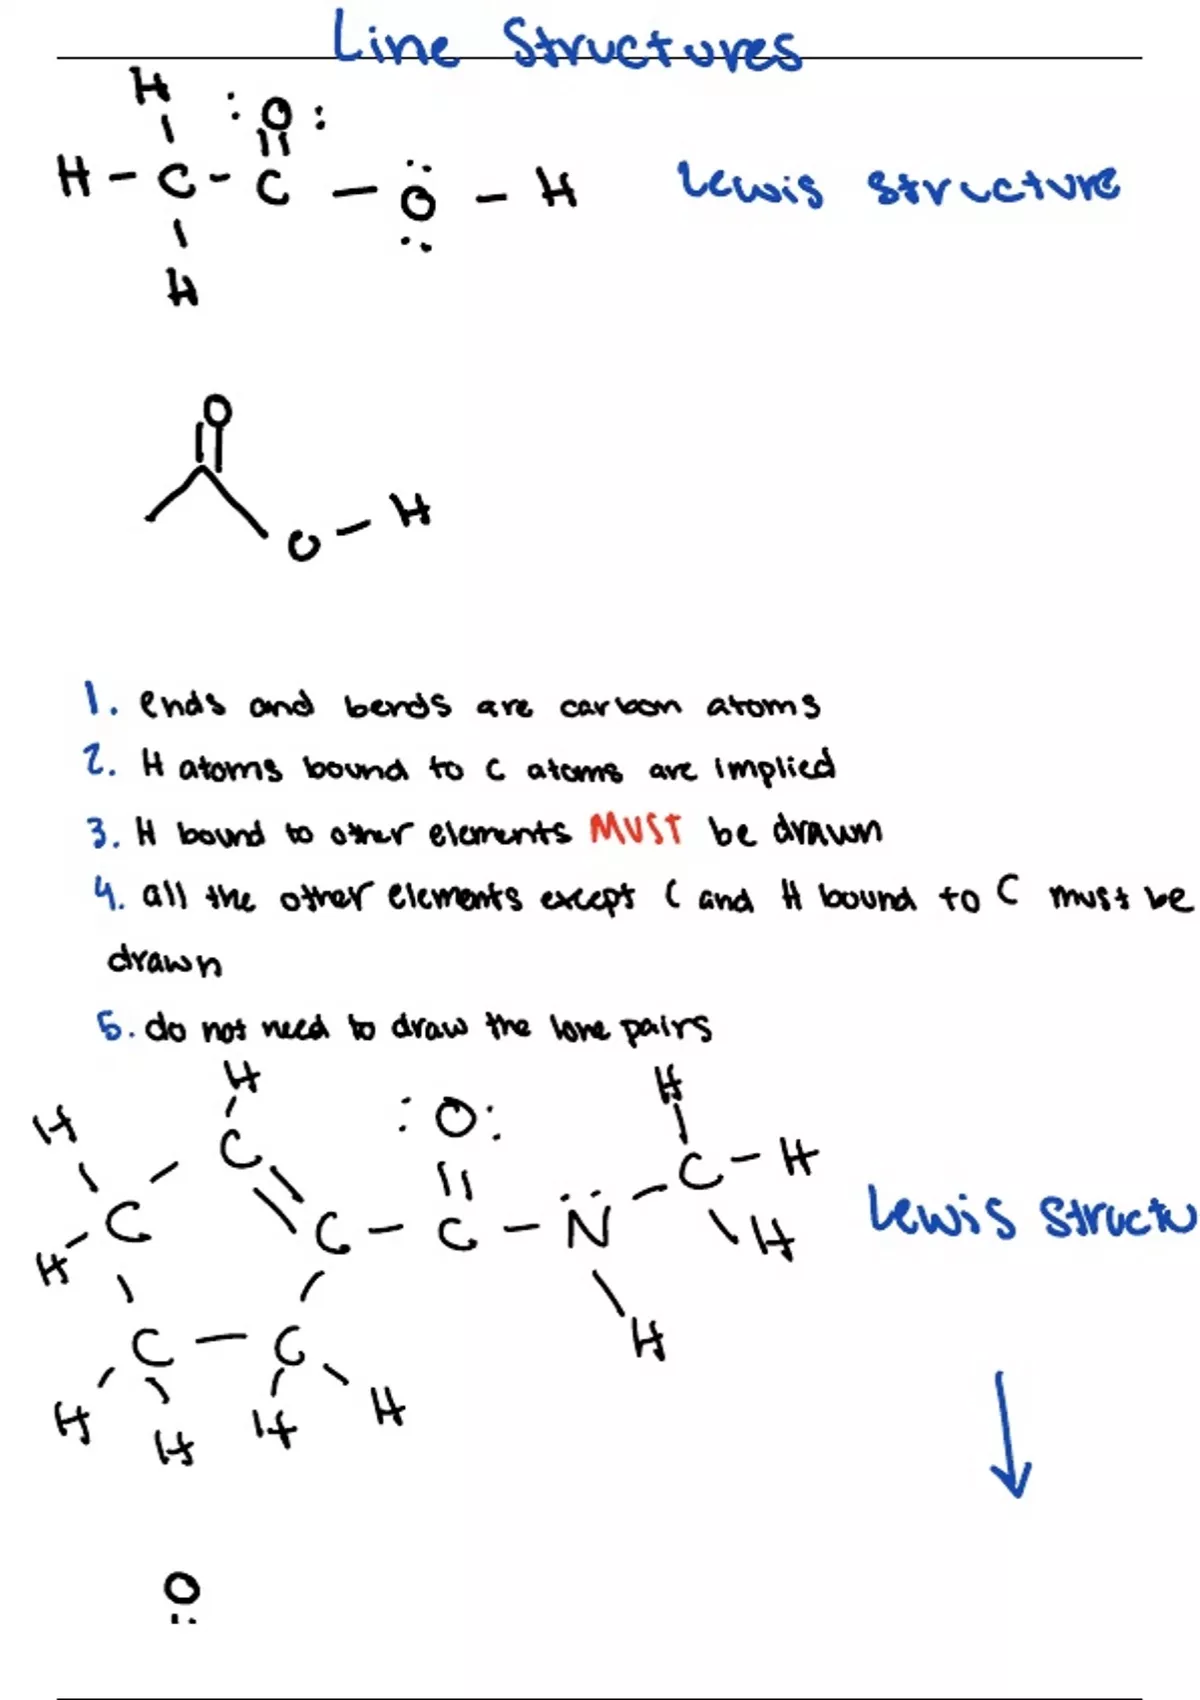 Line Structures
H :O:
H - C - C - O - H Lewis structure
H
O
O - H
1. ends and bends are carbon atoms
2. H atoms bound to C atoms are implied
3. H bound to other elements MUST be drawn
4. all the other elements except C and H bound to C must be
drawn
5. do not need to draw the lone pairs
H H
H C :O: C - H
C C - C - N H Lewis structu
H
C - C H
H H H H
O